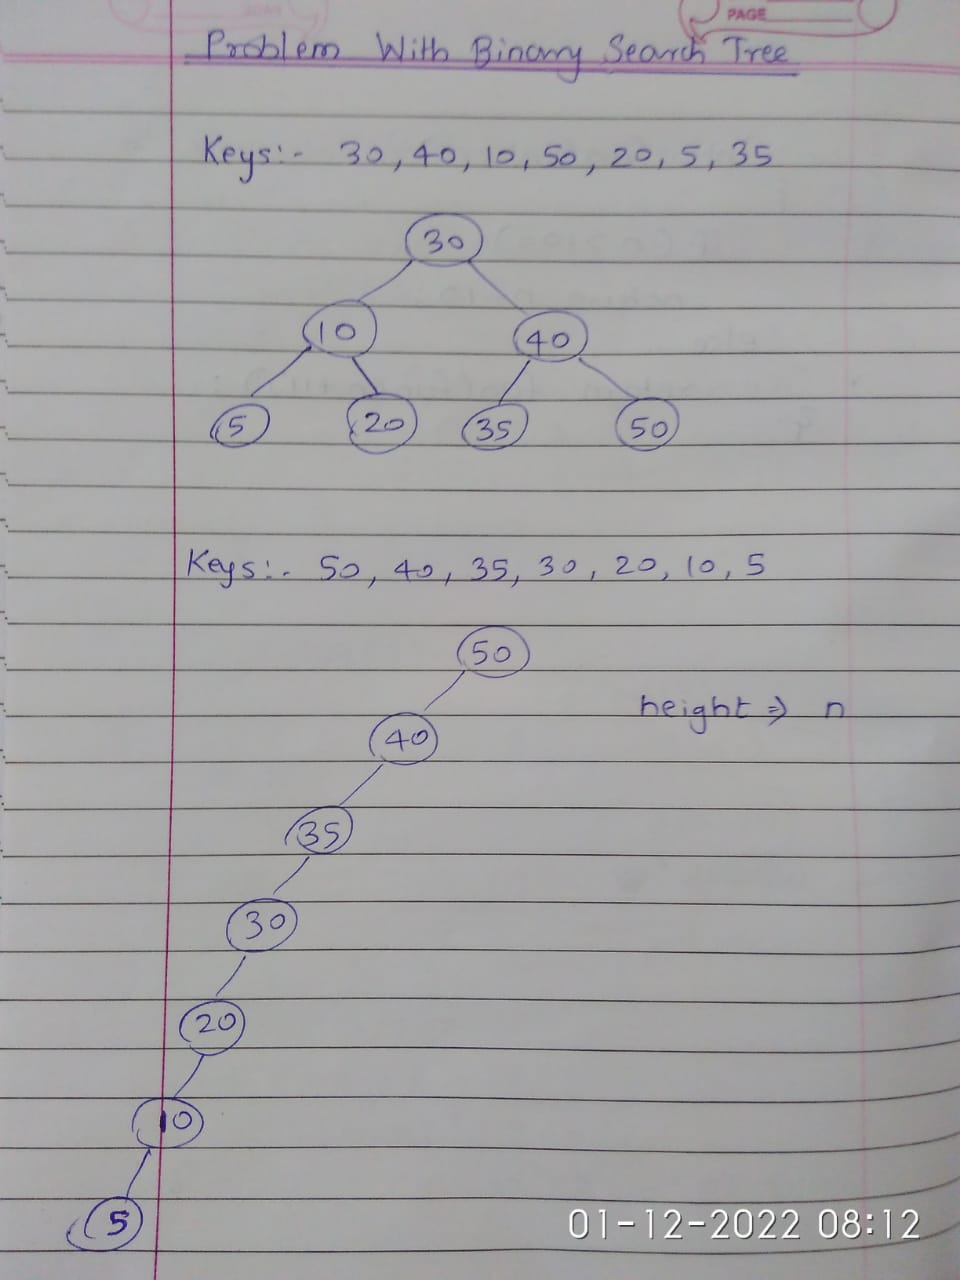 PAGE
Problem With Binary Search Tree
Keys:- 30, 40, 10, 50, 20, 5, 35
30
10 40
5 20 35 50
Keys:- 50, 40, 35, 30, 20, 10, 5
50
height ⇒ n
40
35
30
20
10
5
01-12-2022 08:12